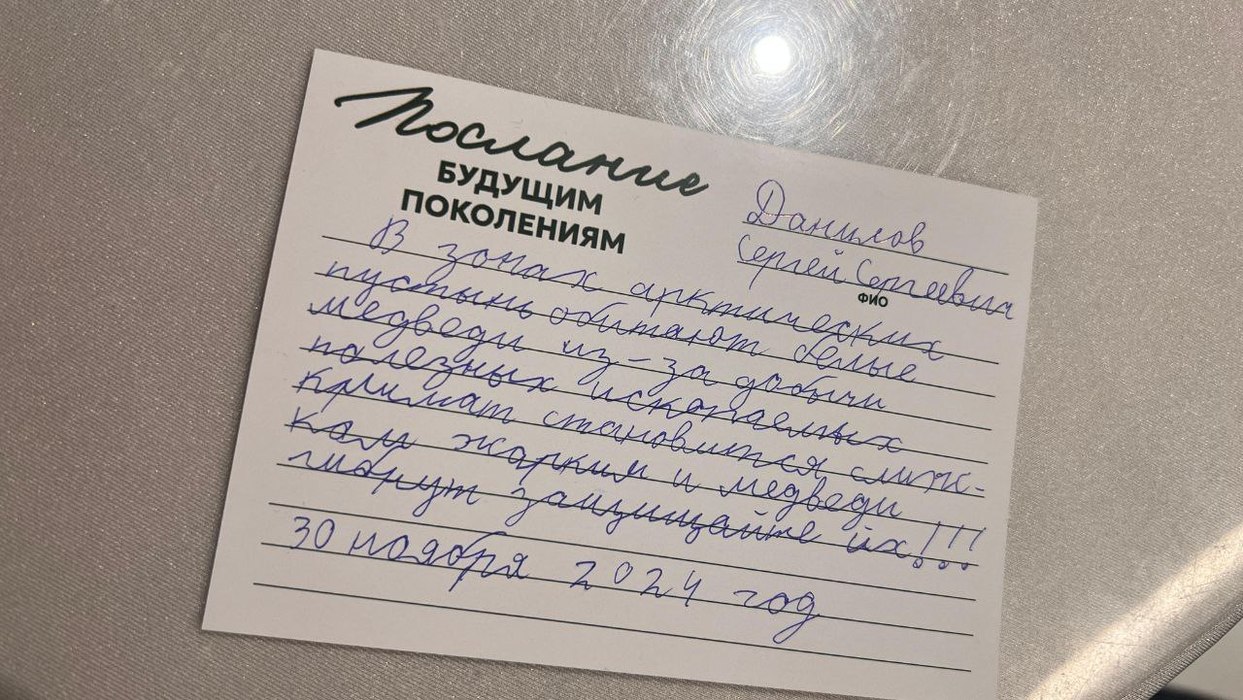 Послание
БУДУЩИМ
ПОКОЛЕНИЯМ
Данилов
Сергей Сергеевич
ФИО
В зонах арктических
пустынь обитают белые
медведи из-за добычи
полезных ископаемых
климат становится слиж-
ком жарким и медведи
гибнут защищайте их!!!
30 ноября 2024 год